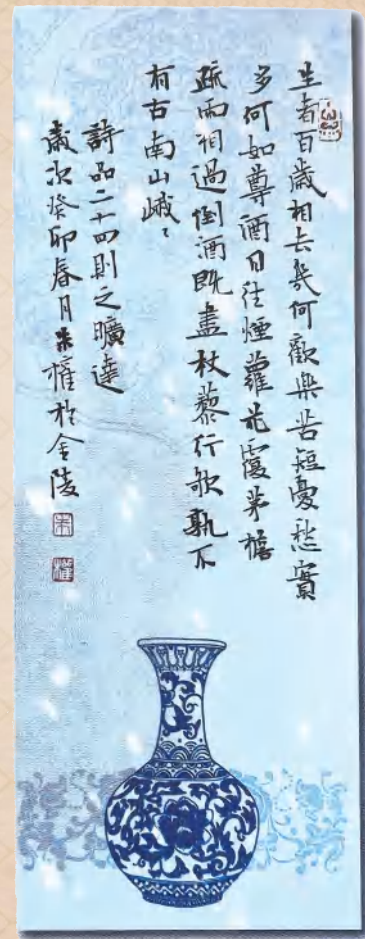 生者百歲相去幾何歡樂苦短憂愁實
多何如尊酒日往煙蘿花覆茅檐
疏雨相過倒酒既盡杖藜行歌孰不
有古南山峨〻
詩品二十四則之曠達
歲次癸卯春月朱權於金陵
朱
權